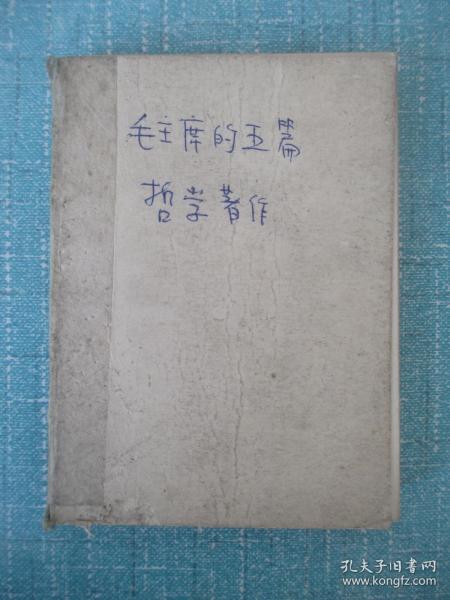 毛主席的五篇
哲学著作
孔夫子旧书网
www.kongfz.com